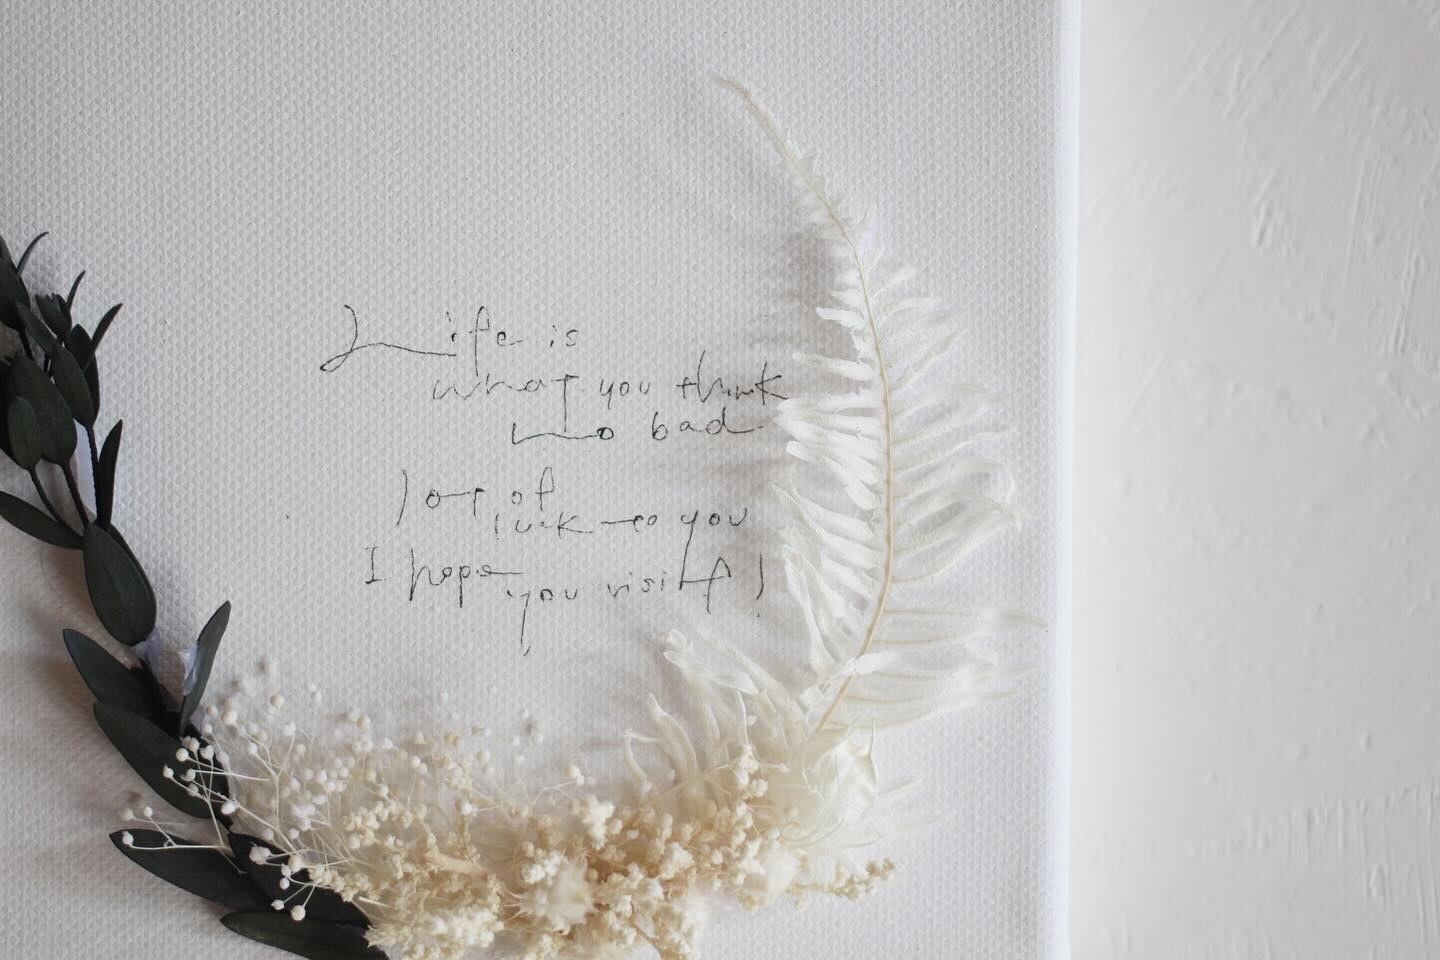 Life is
what you think
no bad
lot of
luck to you
I hope
you visit!